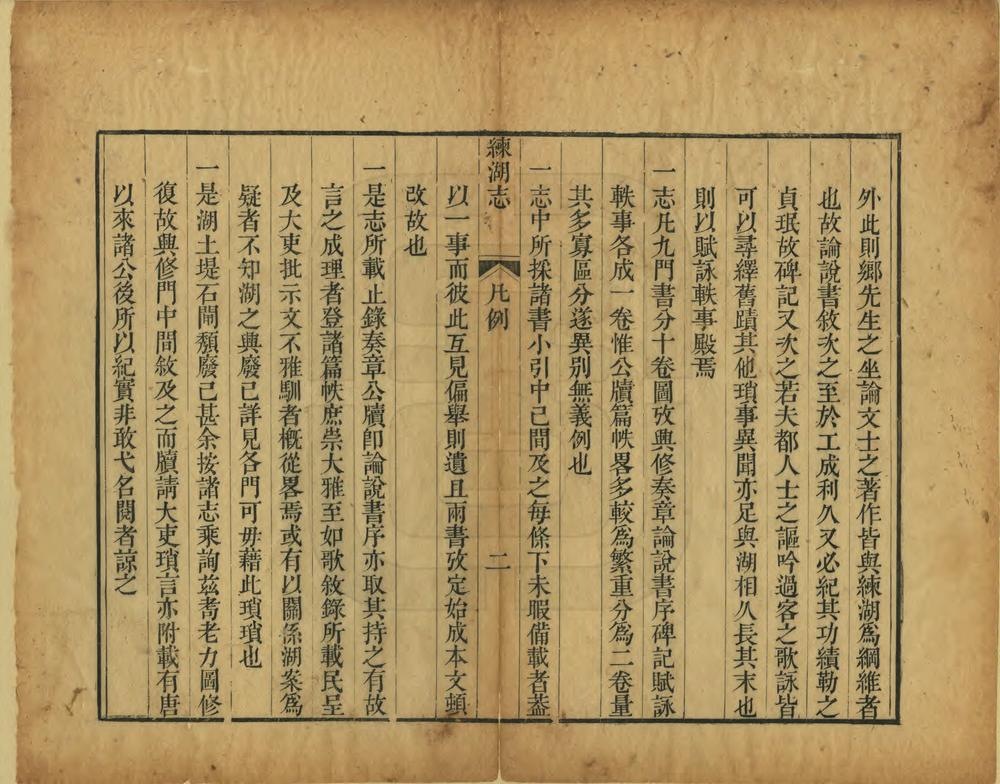 外此則鄉先生之坐論文士之著作皆與練湖爲綱維者
也故論說書敘次之至於工成利久又必紀其功績勒之
貞珉故碑記又次之若夫都人士之謳吟過客之歌詠皆
可以尋繹舊蹟其他瑣事異聞亦足與湖相久長其末也
則以賦詠軼事殿焉
一志凡九門書分十卷圖攷興修奏章論說書序碑記賦詠
軼事各成一卷惟公牘篇帙畧多較爲繁重分爲二卷量
其多寡區分遂異別無義例也
一志中所採諸書小引中已間及之每條下未暇備載者葢
練湖志
凡例
二
以一事而彼此互見偏舉則遺且兩書攷定始成本文頓
改故也
一是志所載止錄奏章公牘卽論說書序亦取其持之有故
言之成理者登諸篇帙庶崇大雅至如歌敘錄所載民呈
及大吏批示文不雅馴者槪從畧焉或有以關係湖案爲
疑者不知湖之興廢已詳見各門可毋藉此瑣瑣也
一是湖土堤石閘頽廢已甚余按諸志乘詢茲耆老力圖修
復故興修門中間敘及之而牘請大吏瑣言亦附載有唐
以來諸公後所以紀實非敢弋名閱者諒之